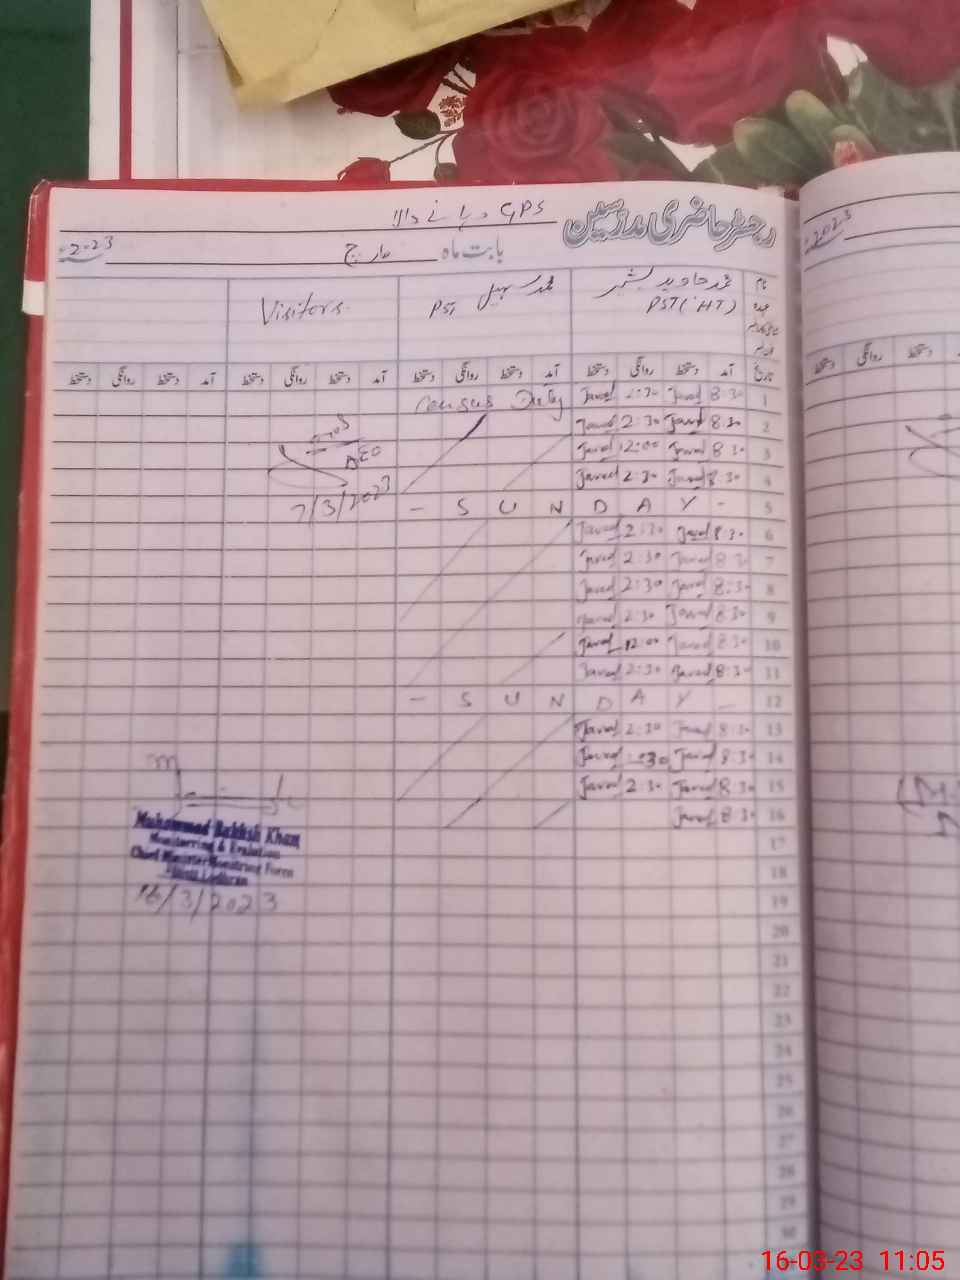 رجسٹر حاضری مدرسین GPS
2023 بابت ماہ مارچ
نام محمد جاوید بشیر محمد سہیل Visitors
عہدہ PST(HT) PST
تاریخ آمد دستخط روانگی دستخط آمد دستخط روانگی دستخط آمد دستخط روانگی دستخط آمد دستخط روانگی دستخط
1 8:30 Javed 2:30 Javed Census Duty
2 8:30 Javed 2:30 Javed
3 8:30 Javed 12:00 Javed
4 8:30 Javed 2:30 Javed
5 - S U N D A Y -
6 8:30 Javed 2:30 Javed
7 8:30 Javed 2:30 Javed
8 8:30 Javed 2:30 Javed
9 8:30 Javed 2:30 Javed
10 8:30 Javed 12:00 Javed
11 8:30 Javed 2:30 Javed
12 - S U N D A Y -
13 8:30 Javed 2:30 Javed
14 8:30 Javed :30 Javed
15 8:30 Javed 2:30 Javed
16 8:30 Javed
17
18
19
20
21
22
23
24
25
26
27
28
29
30
AEO
7/3/2023
Muhammad Bakhsh Khan
Monitorring & Evalution
Chief Minister Monitring Form
Lodhran
16/3/2023
2023
دستخط روانگی دستخط
16-03-23 11:05